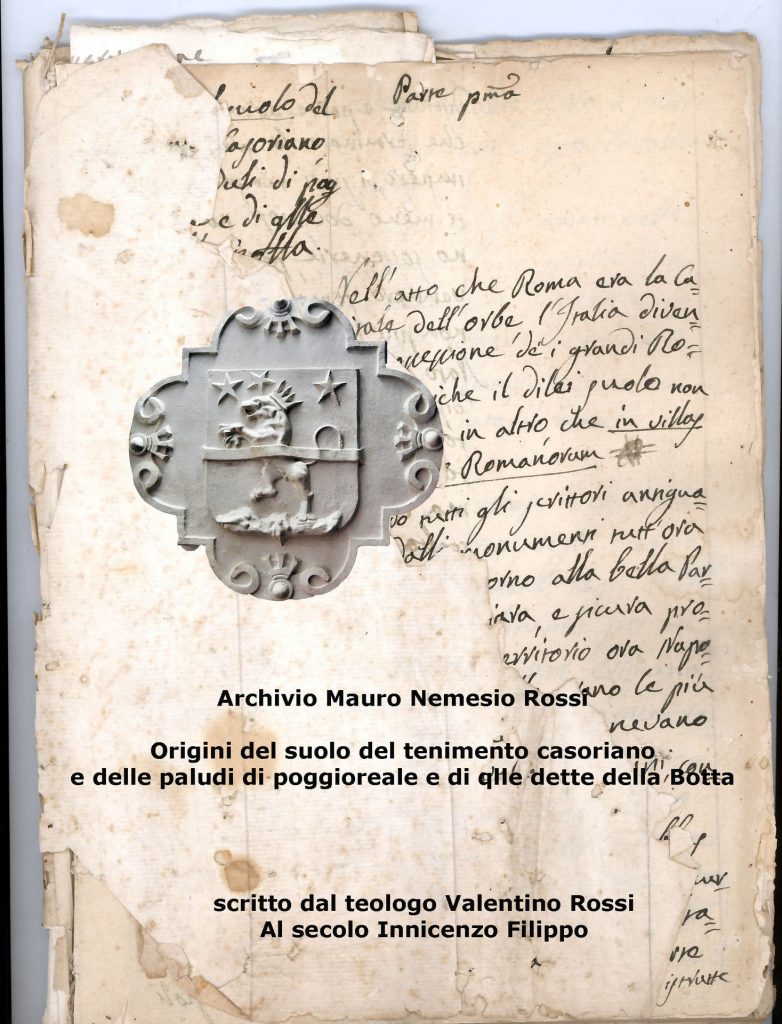 suolo del
Parte pma
Casoriano
di pog
e di qlle
Nell'atto che Roma era la Ca=
dell'orbe l'Italia diven=
de' i grandi Ro=
che il dilei suolo non
in altro che in villas
Romanorum
tutti gli scrittori antiqua=
dalli monumenti tutt'ora
orno alla bella Par=
e sicura pro=
territorio ora Napo=
ano le più
nevano
Archivio Mauro Nemesio Rossi
Origini del suolo del tenimento casoriano
e delle paludi di poggioreale e di qlle dette della Botta
con
scritto dal teologo Valentino Rossi
ra=
Al secolo Innicenzo Filippo